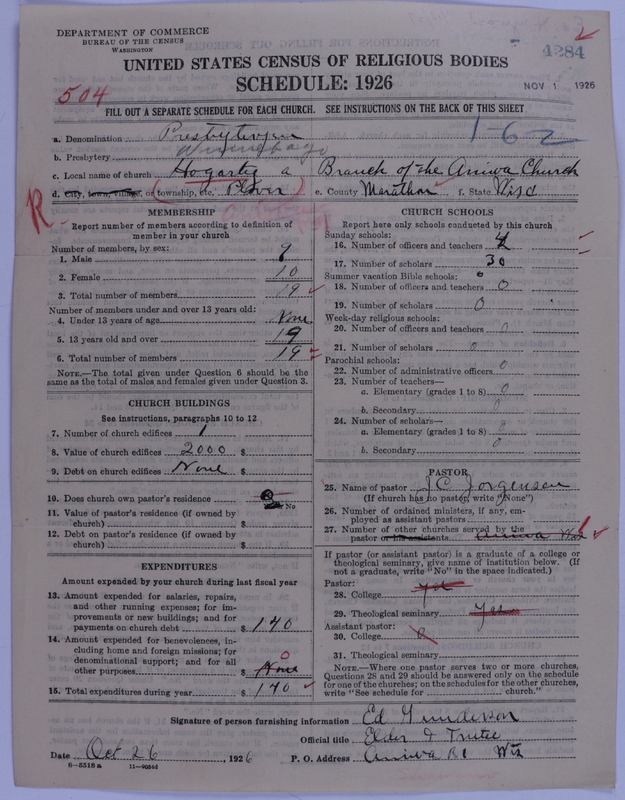 DEPARTMENT OF COMMERCE
BUREAU OF THE CENSUS
WASHINGTON
4284
UNITED STATES CENSUS OF RELIGIOUS BODIES
SCHEDULE: 1926
NOV 1 1926
504
FILL OUT A SEPARATE SCHEDULE FOR EACH CHURCH. SEE INSTRUCTIONS ON THE BACK OF THIS SHEET
1-62
a. Denomination Presbyterian
b. Presbytery Winnebago
c. Local name of church Hogarty a Branch of the Aniwa Church
d. City, town, village, or township, etc. (Plover) e. County Marathon f. State Wis
R
MEMBERSHIP
Report number of members according to definition of member in your church
Number of members, by sex:
1. Male 9
2. Female 10
3. Total number of members 19
Number of members under and over 13 years old:
4. Under 13 years of age None
5. 13 years old and over 19
6. Total number of members 19
NOTE.—The total given under Question 6 should be the same as the total of males and females given under Question 3.
CHURCH BUILDINGS
See instructions, paragraphs 10 to 12
7. Number of church edifices 1
8. Value of church edifices 2000 $
9. Debt on church edifices None $
10. Does church own pastor's residence No
11. Value of pastor's residence (if owned by church) $
12. Debt on pastor's residence (if owned by church) $
EXPENDITURES
Amount expended by your church during last fiscal year
13. Amount expended for salaries, repairs, and other running expenses; for improvements or new buildings; and for payments on church debt $ 140
14. Amount expended for benevolences, including home and foreign missions; for denominational support; and for all other purposes $ None 0
15. Total expenditures during year $ 140
CHURCH SCHOOLS
Report here only schools conducted by this church
Sunday schools:
16. Number of officers and teachers 4
17. Number of scholars 30
Summer vacation Bible schools:
18. Number of officers and teachers 0
19. Number of scholars 0
Week-day religious schools:
20. Number of officers and teachers 0
21. Number of scholars 0
Parochial schools:
22. Number of administrative officers 0
23. Number of teachers—
a. Elementary (grades 1 to 8) 0
b. Secondary 0
24. Number of scholars—
a. Elementary (grades 1 to 8) 0
b. Secondary 0
PASTOR
25. Name of pastor J C Jorgensen
(If church has no pastor, write "None")
26. Number of ordained ministers, if any, employed as assistant pastors
27. Number of other churches served by the pastor or his assistants Aniwa Wis 1
If pastor (or assistant pastor) is a graduate of a college or theological seminary, give name of institution below. (If not a graduate, write "No" in the space indicated.)
Pastor:
28. College yes
29. Theological seminary yes
Assistant pastor:
30. College
31. Theological seminary
NOTE.—Where one pastor serves two or more churches, Questions 28 and 29 should be answered only on the schedule for one of the churches; on the schedules for the other churches, write "See schedule for church."
Signature of person furnishing information Ed Gunderson
Official title Elder & Trustee
Date Oct 26, 1926 P. O. Address Aniwa R1 Wis
8-5516a 11-90544